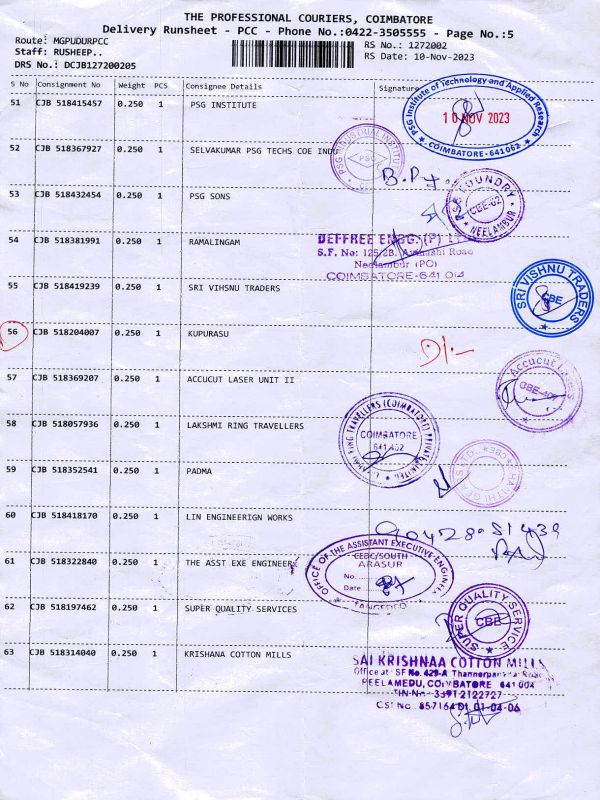 THE PROFESSIONAL COURIERS, COIMBATORE
Delivery Runsheet - PCC - Phone No.:0422-3505555 - Page No.:5
Route: MGPUDURPCC
RS No.: 1272002
Staff: RUSHEEP..
RS Date: 10-Nov-2023
DRS No.: DCJB127200205
S No Consignment No Weight PCS Consignee Details Signature
51 CJB 518415457 0.250 1 PSG INSTITUTE
PSG Institute of Technology and Applied Research
10 NOV 2023
COIMBATORE - 641 062
52 CJB 518367927 0.250 1 SELVAKUMAR PSG TECHS COE INDU
PSG INDUSTRIAL INSTITUTE
PSG
53 CJB 518432454 0.250 1 PSG SONS
FOUNDRY
CBE-62
NEELAMBUR
54 CJB 518381991 0.250 1 RAMALINGAM
DEFFREE ENGG. (P) LTD
S.F. No: 125/2B, Avinashi Road
Neelambur (PO)
COIMBATORE-641 014
55 CJB 518419239 0.250 1 SRI VIHSNU TRADERS
SRI VISHNU TRADERS
CBE
56 CJB 518204007 0.250 1 KUPURASU
57 CJB 518369207 0.250 1 ACCUCUT LASER UNIT II
Accucut
58 CJB 518057936 0.250 1 LAKSHMI RING TRAVELLERS
RING TRAVELLERS (COIMBATORE) PRIVATE LIMITED
COIMBATORE
641 402
59 CJB 518352541 0.250 1 PADMA
60 CJB 518418170 0.250 1 LIN ENGINEERIGN WORKS
61 CJB 518322840 0.250 1 THE ASST EXE ENGINEER
OFFICE OF THE ASSISTANT EXECUTIVE ENGINEER
CEDC/SOUTH
ARASUR
No.
Date
TANGEDCO
62 CJB 518197462 0.250 1 SUPER QUALITY SERVICES
SUPER QUALITY SERVICE
CBE
63 CJB 518314040 0.250 1 KRISHANA COTTON MILLS
SAI KRISHNAA COTTON MILLS
Office at: SF No. 429-A Road
PEELAMEDU, COIMBATORE 641 004
TIN No 33912122727
CST No. 857164 Dt. 01-04-06